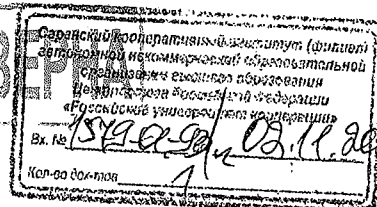 Саранский кооперативный институт (филиал)
автономной некоммерческой образовательной
организации высшего образования
Центросоюза Российской Федерации
«Российский университет кооперации»
Вх. № 02.11.20
Кол-во док-тов 1